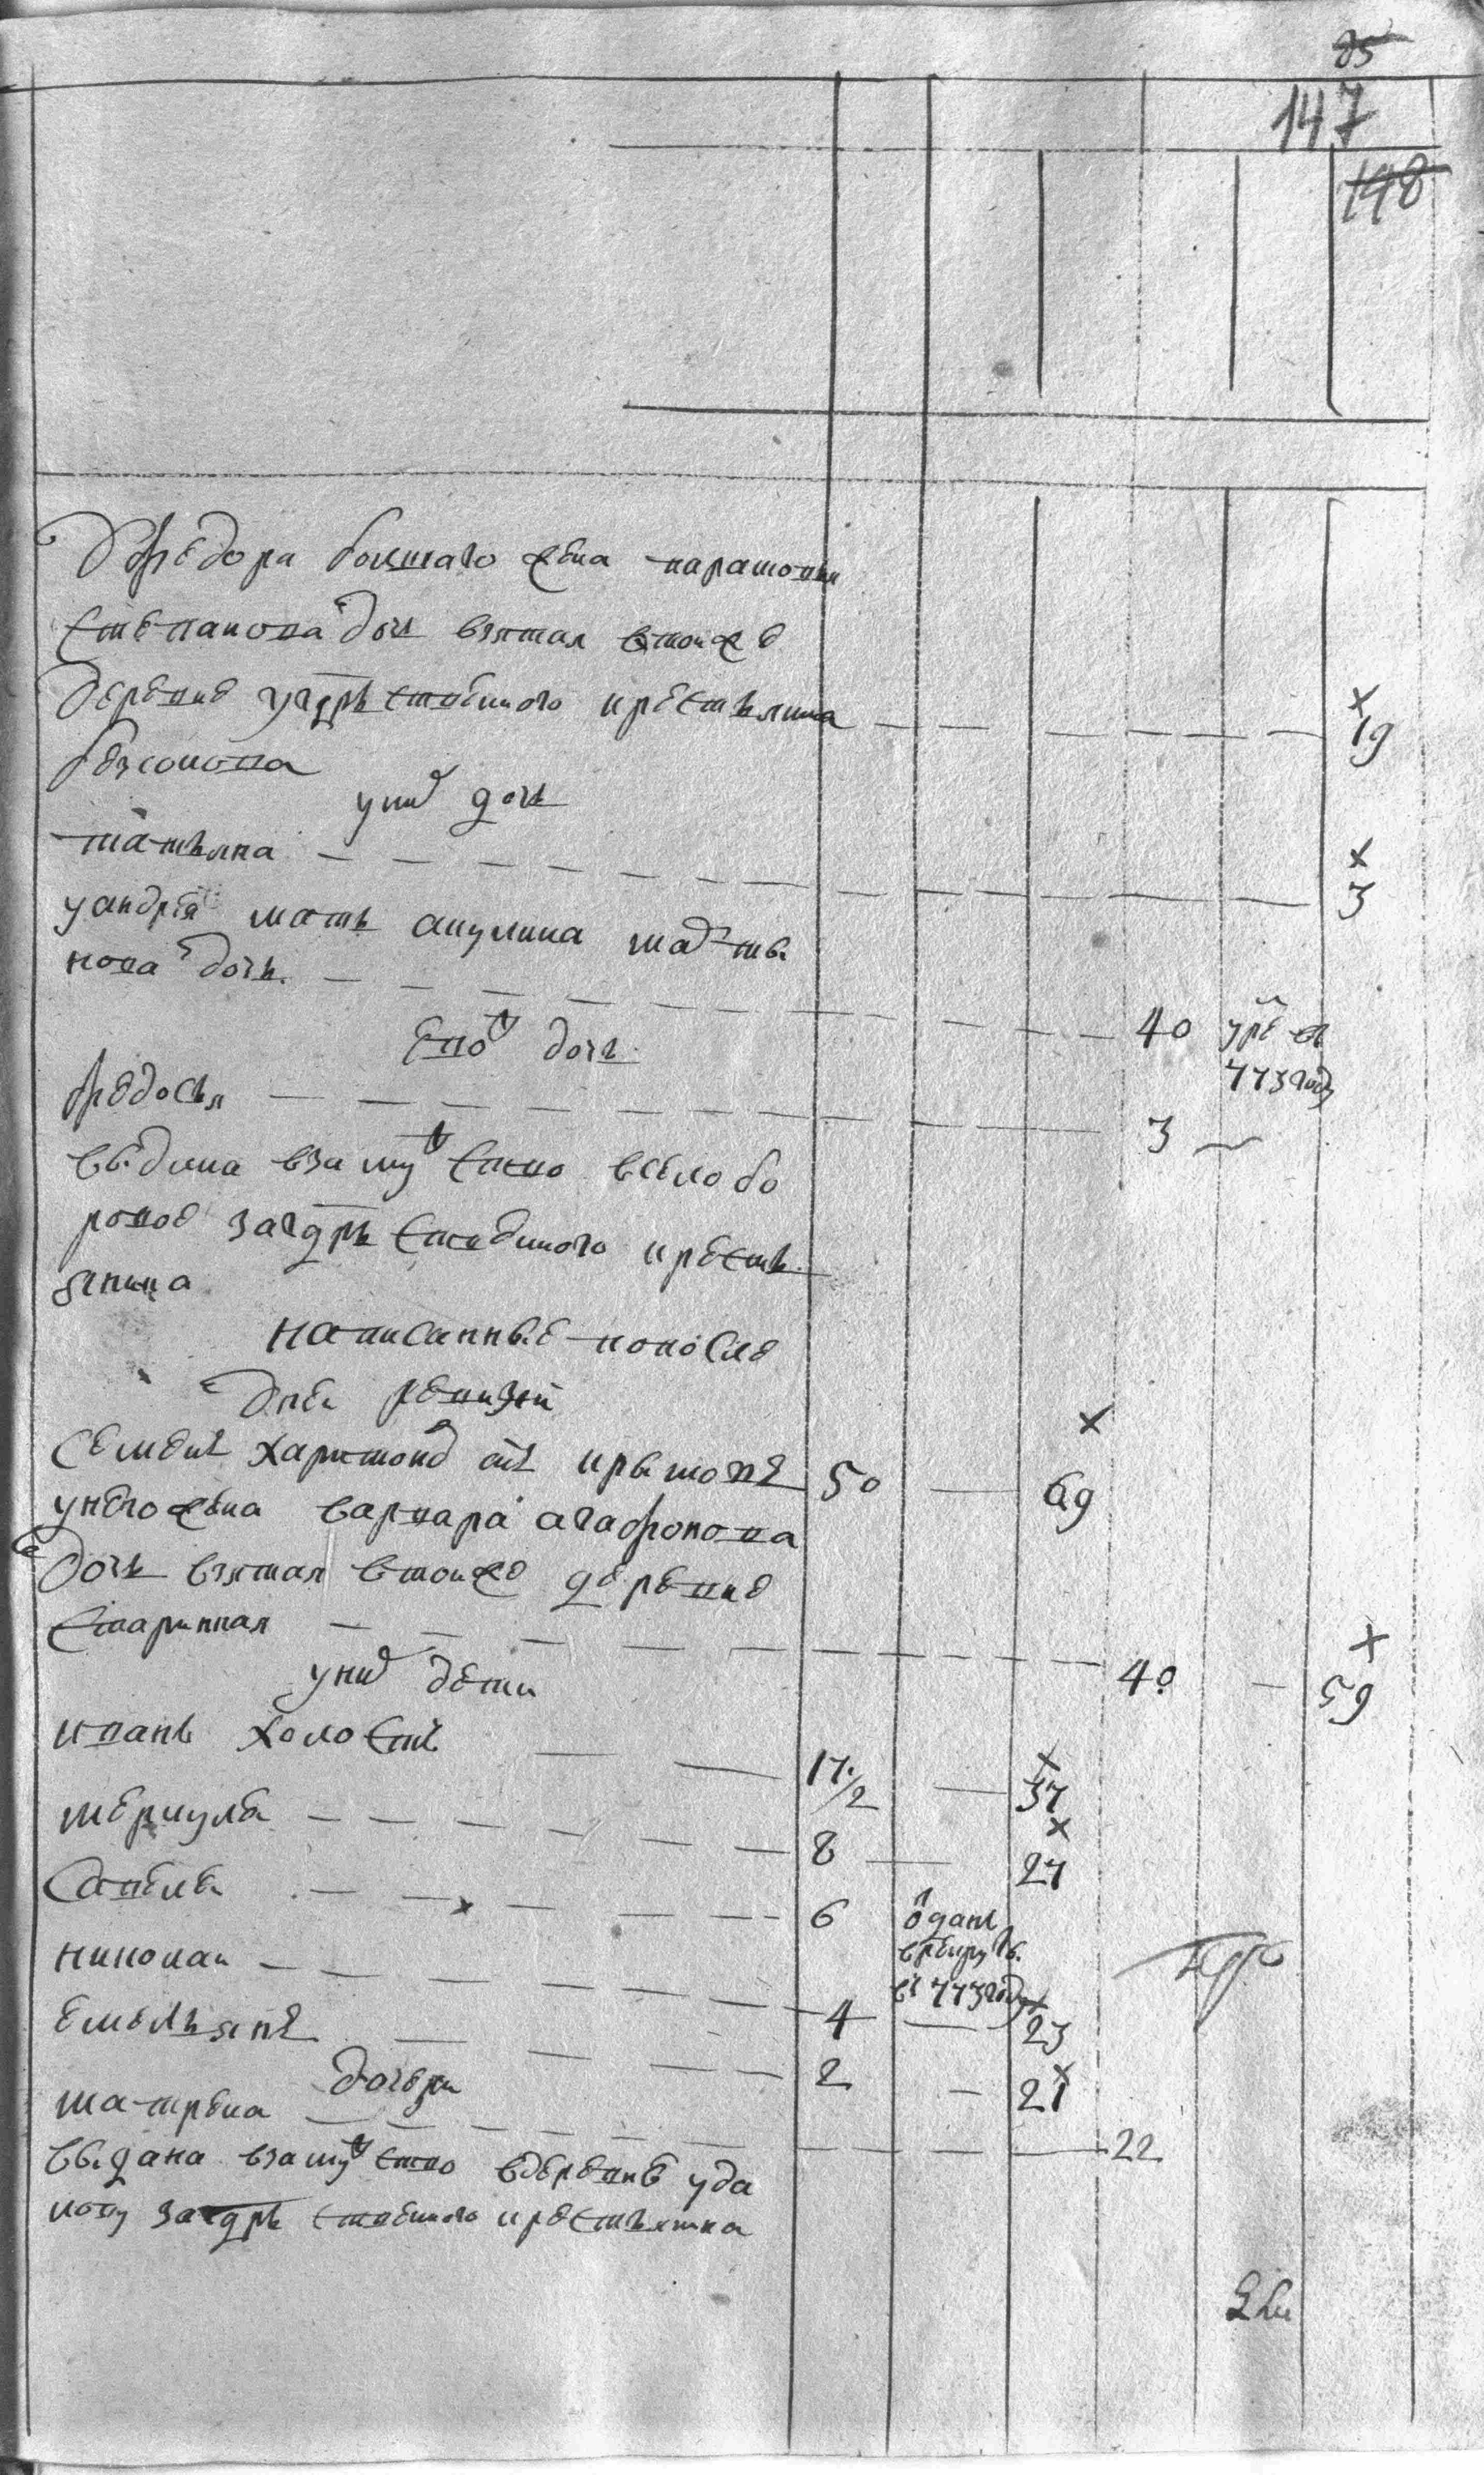 85
147
148
У федора болшаго жена парамонья
степанова дочь взятая втойже
деревне угдрственного крестьянина
19
безсонова
у них дочь
татьяна
3
у андрея мать акулина матве
нова дочь
40 умре в
773 году
Ево дочь
федосья
3
выдана взамужство вселобо
ровое за гдрственного кресть
янина
написанные попосле
дней ревизии
Семенъ Харитоновъ снъ крымовъ 50 69
унего жена варвара агафонова
дочь взятая втойже деревне
старинная
40 59
у них дети
иванъ холостъ
17 1/2 37
меркулей
8 27
савелей
6 отданъ
в рекруты
въ 773 году
николай
4 23
емельянъ
2 21
дочери
матрена
22
выдана взамужство вдеревню уда
лову за гдрственного крестьянина